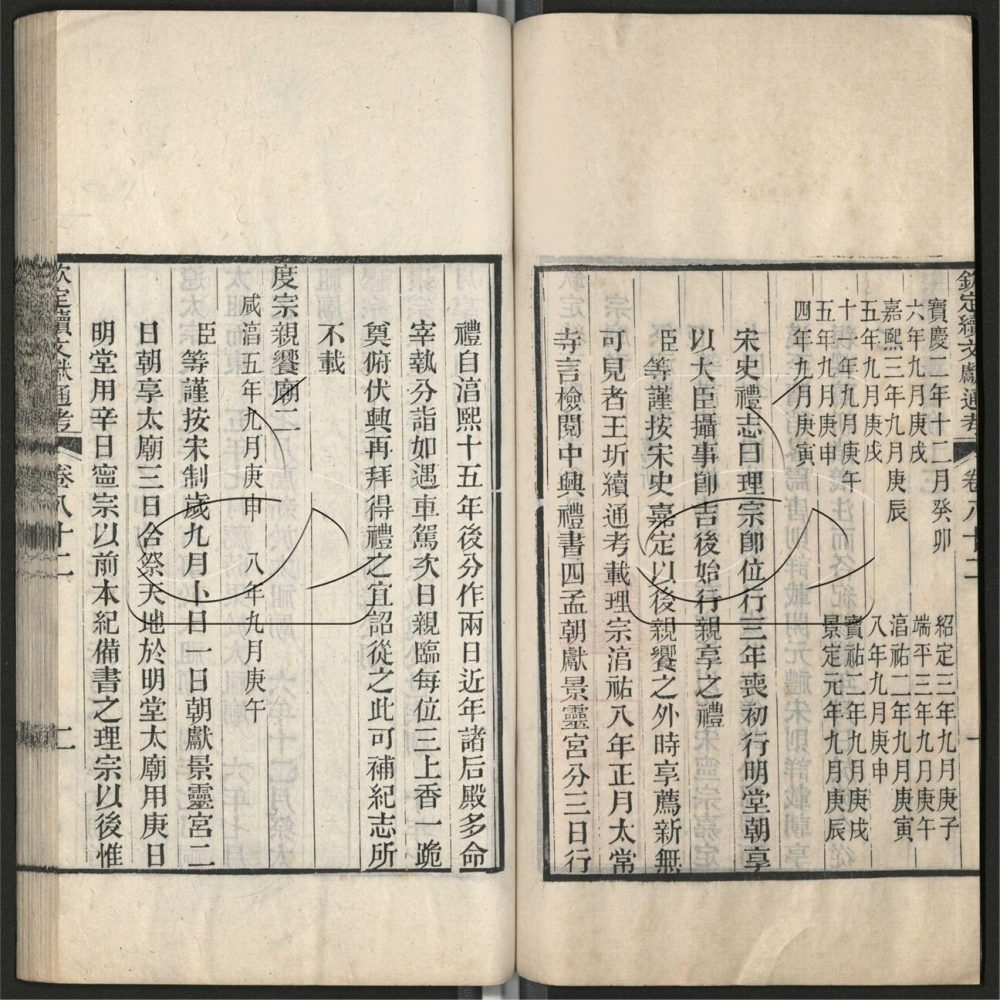 欽定續文獻通考 卷八十二 一
寶慶二年十二月癸卯 紹定三年九月庚子
六年九月庚戌 端平三年九月庚午
嘉熙三年九月庚辰 淳祐二年九月庚寅
五年九月庚戌 八年九月庚申
十年九月庚午 寶祐二年九月庚戌
五年九月庚申 景定元年九月庚辰
四年九月庚寅
宋史禮志曰理宗卽位行三年喪初行明堂朝享
以大臣攝事卽吉後始行親享之禮
臣等謹按宋史嘉定以後親饗之外時享薦新無
可見者王圻續通考載理宗淳祐八年正月太常
寺言檢閱中興禮書四孟朝獻景靈宮分三日行
禮自淳熙十五年後分作兩日近年諸后殿多命
宰執分詣如遇車駕次日親臨每位三上香一跪
奠俯伏興再拜得禮之宜詔從之此可補紀志所
不載
度宗親饗廟二
咸淳五年九月庚申 八年九月庚午
臣等謹按宋制歲九月卜日一日朝獻景靈宮二
日朝享太廟三日合祭天地於明堂太廟用庚日
明堂用辛日寧宗以前本紀備書之理宗以後惟
欽定續文獻通考 卷八十二 二